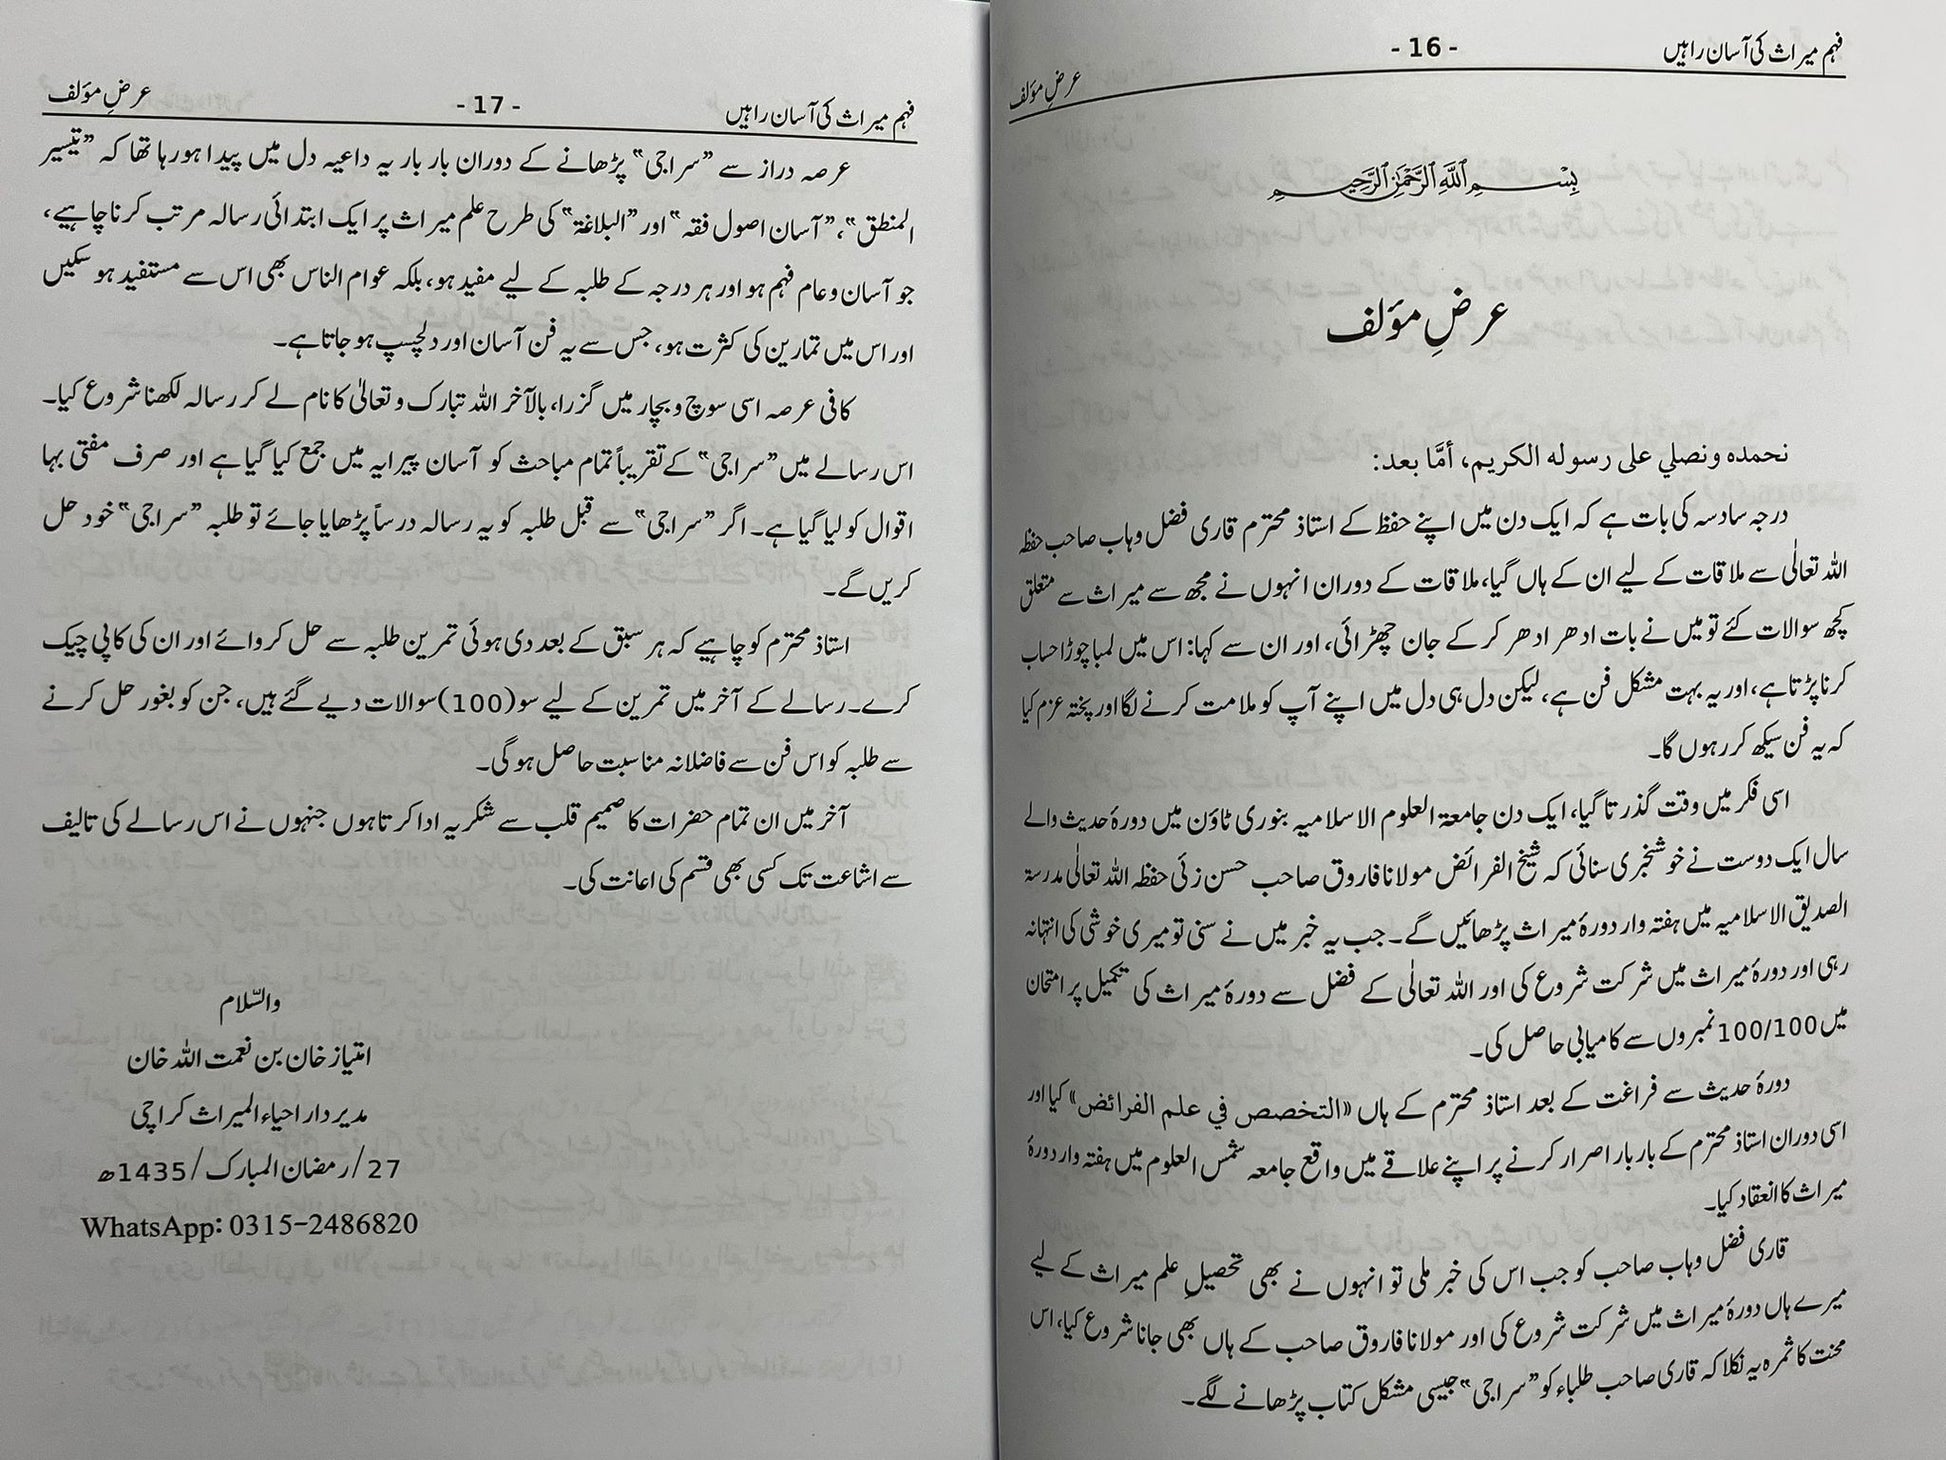 فہم میراث کی آسان راہیں
- 16 -
عرضِ مؤلف
بِسْمِ اللهِ الرَّحْمٰنِ الرَّحِيْمِ
عرضِ مؤلف
نحمده ونصلي على رسوله الكريم، أمَّا بعد:
درجہ سادسہ کی بات ہے کہ ایک دن میں اپنے حفظ کے استاذ محترم قاری فضل وہاب صاحب حفظہ
اللہ تعالٰی سے ملاقات کے لیے ان کے ہاں گیا، ملاقات کے دوران انہوں نے مجھ سے میراث سے متعلق
کچھ سوالات کئے تو میں نے بات ادھر ادھر کر کے جان چھڑائی، اور ان سے کہا: اس میں لمبا چوڑا حساب
کرنا پڑتا ہے، اور یہ بہت مشکل فن ہے، لیکن دل ہی دل میں اپنے آپ کو ملامت کرنے لگا اور پختہ عزم کیا
کہ یہ فن سیکھ کر رہوں گا۔
اسی فکر میں وقت گذرتا گیا، ایک دن جامعۃ العلوم الاسلامیہ بنوری ٹاؤن میں دورۂ حدیث والے
سال ایک دوست نے خوشخبری سنائی کہ شیخ الفرائض مولانا فاروق صاحب حسن زئی حفظہ اللہ تعالٰی مدرسۃ
الصدیق الاسلامیہ میں ہفتہ وار دورۂ میراث پڑھائیں گے۔ جب یہ خبر میں نے سنی تو میری خوشی کی انتہا نہ
رہی اور دورۂ میراث میں شرکت شروع کی اور اللہ تعالٰی کے فضل سے دورۂ میراث کی تکمیل پر امتحان
میں 100/100 نمبروں سے کامیابی حاصل کی۔
دورۂ حدیث سے فراغت کے بعد استاذ محترم کے ہاں «التخصص في علم الفرائض» کیا اور
اسی دوران استاذ محترم کے بار بار اصرار کرنے پر اپنے علاقے میں واقع جامعہ شمس العلوم میں ہفتہ وار دورۂ
میراث کا انعقاد کیا۔
قاری فضل وہاب صاحب کو جب اس کی خبر ملی تو انہوں نے بھی تحصیلِ علم میراث کے لیے
میرے ہاں دورۂ میراث میں شرکت شروع کی اور مولانا فاروق صاحب کے ہاں بھی جانا شروع کیا، اس
محنت کا ثمرہ یہ نکلا کہ قاری صاحب طلباء کو ”سراجی“ جیسی مشکل کتاب پڑھانے لگے۔
فہم میراث کی آسان راہیں
- 17 -
عرضِ مؤلف
عرصہ دراز سے ”سراجی“ پڑھانے کے دوران بار بار یہ داعیہ دل میں پیدا ہو رہا تھا کہ ”تیسیر
المنطق“، ”آسان اصول فقہ“ اور ”البلاغة“ کی طرح علم میراث پر ایک ابتدائی رسالہ مرتب کرنا چاہیے،
جو آسان و عام فہم ہو اور ہر درجہ کے طلبہ کے لیے مفید ہو، بلکہ عوام الناس بھی اس سے مستفید ہو سکیں
اور اس میں تمارین کی کثرت ہو، جس سے یہ فن آسان اور دلچسپ ہو جاتا ہے۔
کافی عرصہ اسی سوچ و بچار میں گزرا، بالآخر اللہ تبارک و تعالٰی کا نام لے کر رسالہ لکھنا شروع کیا۔
اس رسالے میں ”سراجی“ کے تقریباً تمام مباحث کو آسان پیرایہ میں جمع کیا گیا ہے اور صرف مفتی بہا
اقوال کو لیا گیا ہے۔ اگر ”سراجی“ سے قبل طلبہ کو یہ رسالہ درساً پڑھایا جائے تو طلبہ ”سراجی“ خود حل
کریں گے۔
استاذ محترم کو چاہیے کہ ہر سبق کے بعد دی ہوئی تمرین طلبہ سے حل کروائے اور ان کی کاپی چیک
کرے۔ رسالے کے آخر میں تمرین کے لیے سو (100) سوالات دیے گئے ہیں، جن کو بغور حل کرنے
سے طلبہ کو اس فن سے فاضلانہ مناسبت حاصل ہوگی۔
آخر میں ان تمام حضرات کا صمیم قلب سے شکریہ ادا کرتا ہوں جنہوں نے اس رسالے کی تالیف
سے اشاعت تک کسی بھی قسم کی اعانت کی۔
والسّلام
امتیاز خان بن نعمت اللہ خان
مدیر دار احیاء المیراث کراچی
27/رمضان المبارک/1435ھ
WhatsApp: 0315-2486820